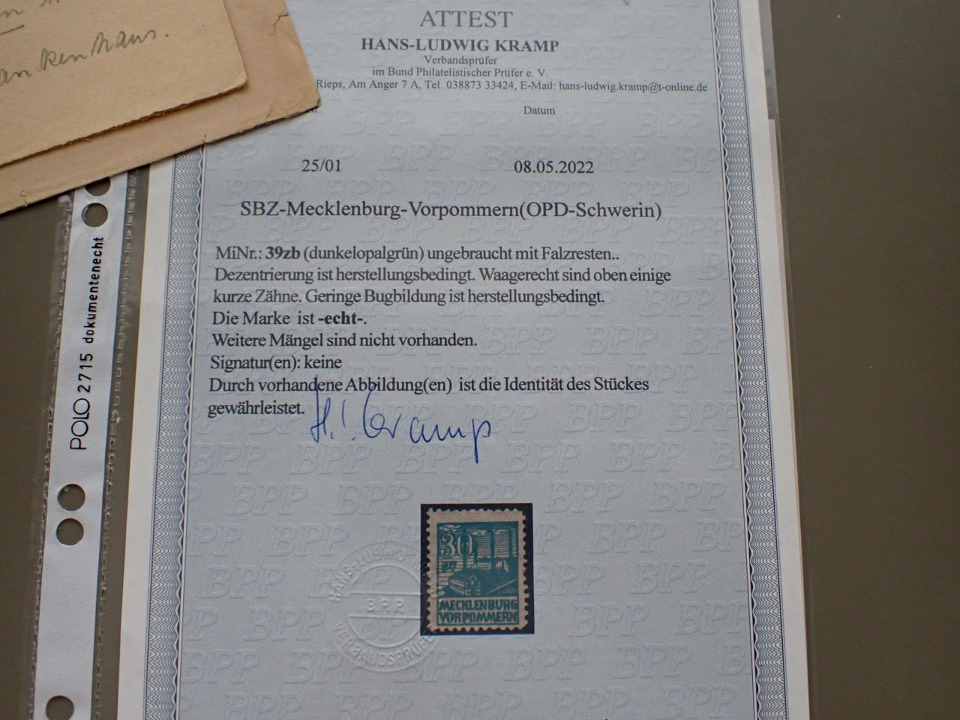 ankenhaus.
ATTEST
HANS-LUDWIG KRAMP
Verbandsprüfer
im Bund Philatelistischer Prüfer e. V.
Rieps, Am Anger 7 A, Tel. 038873 33424, E-Mail: hans-ludwig.kramp@t-online.de
Datum
25/01 08.05.2022
SBZ-Mecklenburg-Vorpommern(OPD-Schwerin)
MiNr.: 39zb (dunkelopalgrün) ungebraucht mit Falzresten..
Dezentrierung ist herstellungsbedingt. Waagerecht sind oben einige
kurze Zähne. Geringe Bugbildung ist herstellungsbedingt.
Die Marke ist -echt-.
Weitere Mängel sind nicht vorhanden.
Signatur(en): keine
Durch vorhandene Abbildung(en) ist die Identität des Stückes
gewährleistet.
H.L. Kramp
30
MECKLENBURG
VORPOMMERN
B.P.P.
POLO 2715 dokumentenecht